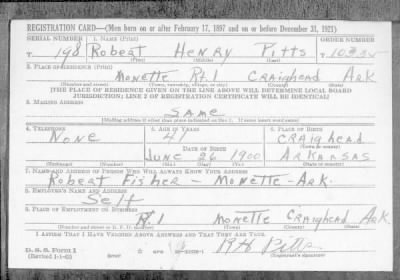 REGISTRATION CARD—(Men born on or after February 17, 1897 and on or before December 31, 1921)
SERIAL NUMBER 1. NAME (Print) ORDER NUMBER
T 198 Robert Henry Pitts T 10335
(First) (Middle) (Last)
2. PLACE OF RESIDENCE (Print)
Monette Rt 1 Craighead Ark
(Number and street) (Town, township, village, or city) (County) (State)
[THE PLACE OF RESIDENCE GIVEN ON THE LINE ABOVE WILL DETERMINE LOCAL BOARD
JURISDICTION; LINE 2 OF REGISTRATION CERTIFICATE WILL BE IDENTICAL]
3. MAILING ADDRESS
Same
[Mailing address if other than place indicated on line 2. If same insert word same]
4. TELEPHONE 5. AGE IN YEARS 6. PLACE OF BIRTH
None 41 Craighead
DATE OF BIRTH (Town or county)
June 26 1900 Arkansas
(Exchange) (Number) (Mo.) (Day) (Yr.) (State or country)
7. NAME AND ADDRESS OF PERSON WHO WILL ALWAYS KNOW YOUR ADDRESS
Robert Fisher - Monette - Ark.
8. EMPLOYER'S NAME AND ADDRESS
Self
9. PLACE OF EMPLOYMENT OR BUSINESS
Rt 1 Monette Craighead Ark
(Number and street or R. F. D. number) (Town) (County) (State)
I AFFIRM THAT I HAVE VERIFIED ABOVE ANSWERS AND THAT THEY ARE TRUE.
D. S. S. Form 1 RH Pitts
(Revised 1-1-42) (over) (Registrant's signature)